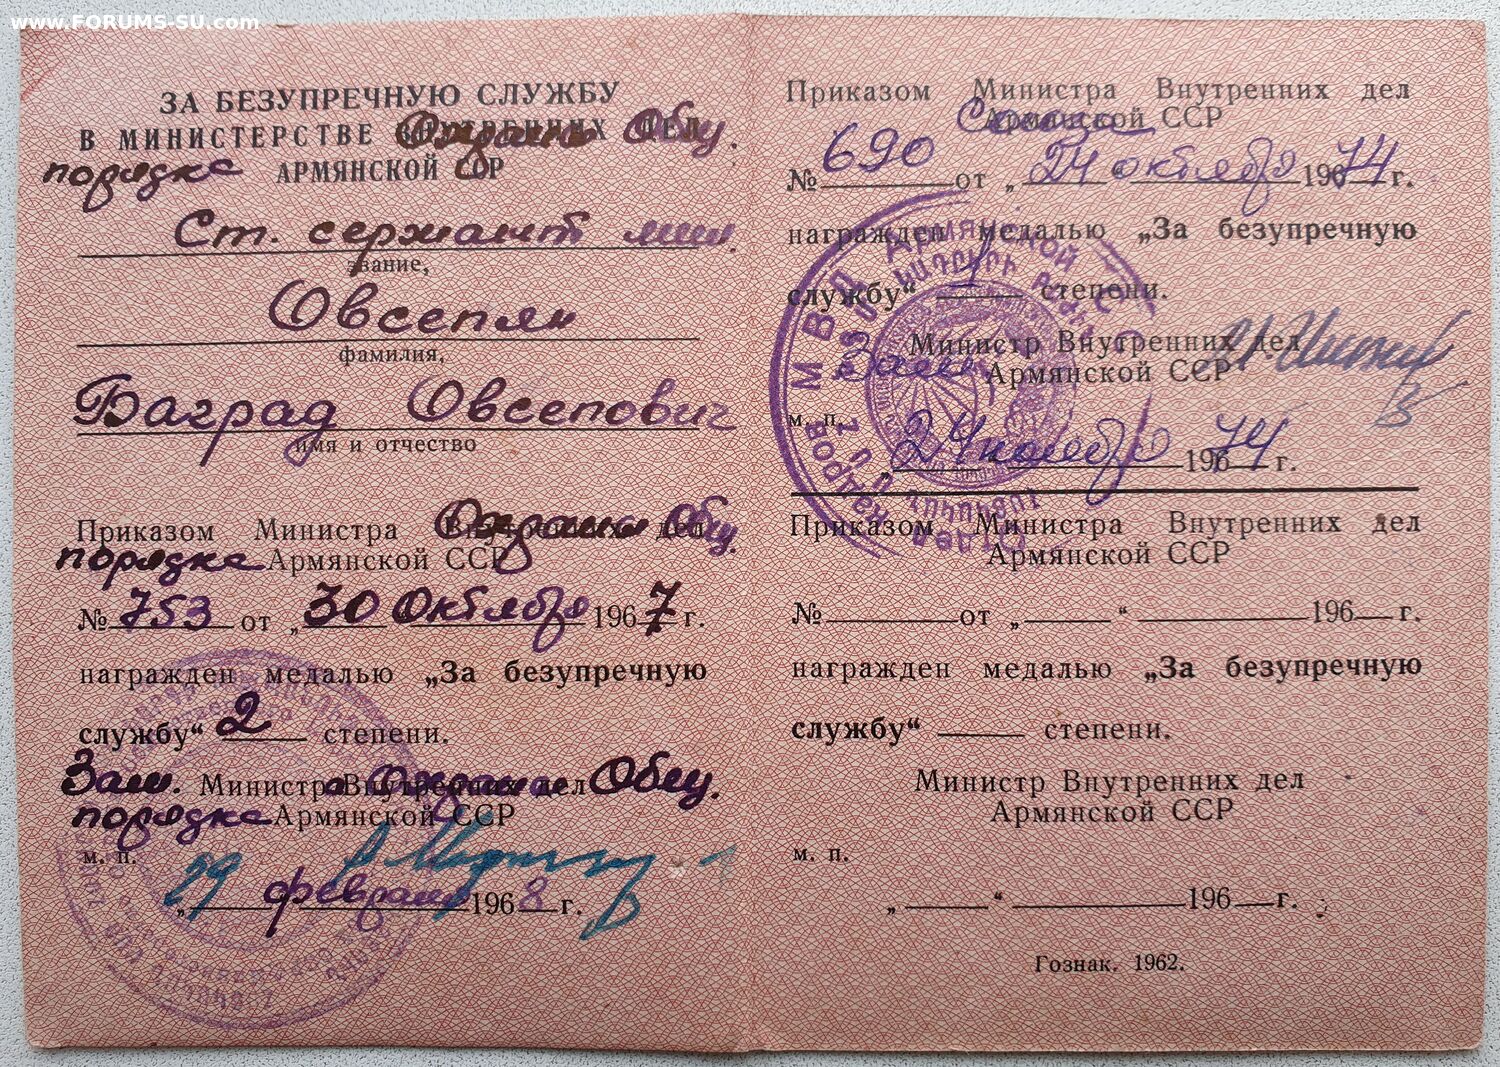 www.FORUMS-SU.com
ЗА БЕЗУПРЕЧНУЮ СЛУЖБУ
В МИНИСТЕРСТВЕ ВНУТРЕННИХ ДЕЛ Охраны Общ.
порядка АРМЯНСКОЙ ССР
Ст. сержант мил.
звание,
Овсепян
фамилия,
Баград Овсепович
имя и отчество
Приказом Министра Внутренних дел Охраны Общ.
порядка Армянской ССР
№ 753 от „30 Октября 1967 г.
награжден медалью „За безупречную
службу“ 2 степени.
Зам. Министра Внутренних дел Охраны Общ.
порядка Армянской ССР
м. п.
„29 февраля 1968 г.
Приказом Министра Внутренних дел
Союза Армянской ССР
№ 690 от „24 октября 196 74 г.
награжден медалью „За безупречную
службу“ 1 степени.
Зам. Министр Внутренних дел
Армянской ССР
м. п.
„24 ноября 196 74 г.
МВД АРМЯНСКОЙ ССР
Приказом Министра Внутренних дел
Армянской ССР
№ от „ “ 196 г.
награжден медалью „За безупречную
службу“ степени.
Министр Внутренних дел
Армянской ССР
м. п.
„ “ 196 г.
Гознак. 1962.